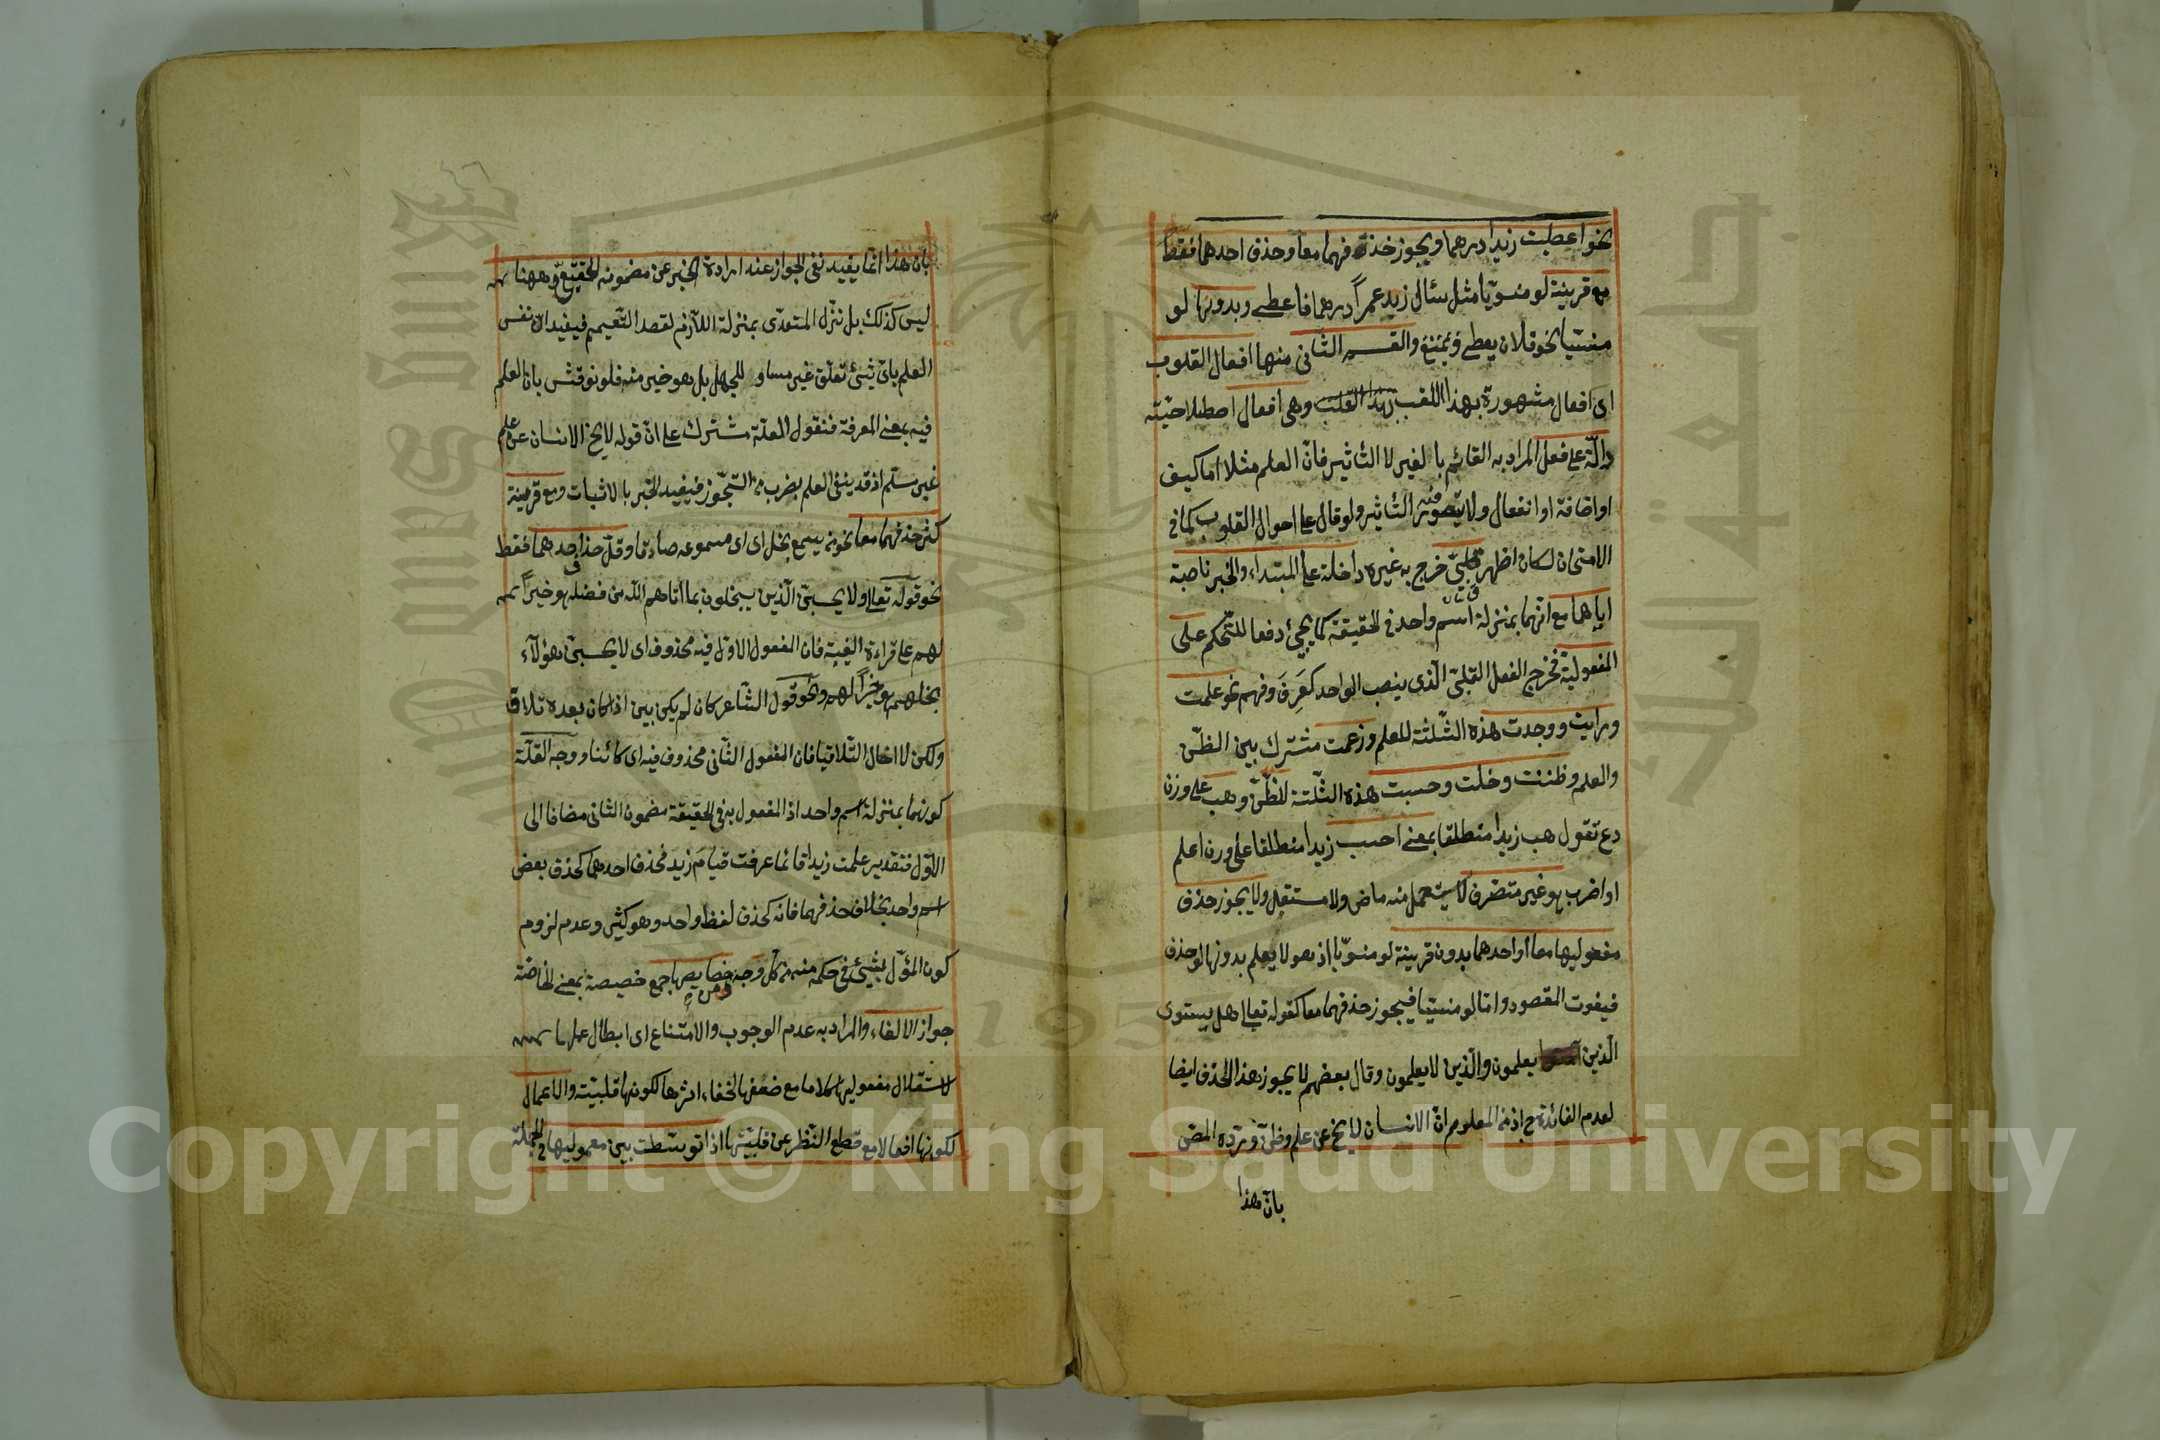 نحو اعطيت زيدا درهما ويجوز حذفهما معا وحذف احدهما فقط
مع قرينة لو منويا مثل سئالى زيد عمرًا درهما فاعطى وبدونها لو
منسيا نحو فلان يعطى ويمنع والقسم الثانى منها افعال القلوب
اى افعال مشهورة بهذا اللقب وهى افعال اصطلاحيّة
دالّة على فعل المراد به القائم بالغير لا التاثير فانّ العلم مثلا اما كيف
او اضافة او انفعال ولا يتصوّر منه التاثير ولو قال على احوال القلوب كما فى
الامتحان لكان اظهر قلبىّ خرج به غيره داخلة على المبتداء والخبر ناصبة
اياهما مع انهما بمنزلة اسم واحد فى الحقيقة كما يجئ دفعا للتّحكم على
المفعولية فخرج الفعل القلبّى الّذى ينصب الواحد كعَرِفَ وفهم نحو علمت
ورايت ووجدت هذه الثّلثة للعلم وزعمت مشترك بين الظنّ
والعلم وظننت وخلت وحسبت هذه الثّلثة للظّنّ وهب على وزن
دع تقول هب زيدا منطلقا بمعنى احسب زيدا منطلقا على وزن اعلم
او اضرب هو غير متصرف لا يستعمل منه ماض ولا مستقبل ولا يجوز حذف
مفعوليها معا او احدهما بدون قرينة لو منويّا اذ هو لا يعلم بدونها لو حذف
فيفوت المقصود واما لو منسيّا فيجوز حذفهما معا كقوله تعالى هل يستوى
الّذين يعلمون والّذين لا يعلمون وقال بعضهم لا يجوز هذا الحذف ايضا
لعدم الفائدة ح اذ من المعلوم انّ الانسان لا يخ عن علم وظنّ وردّه المصّ
بانّ هذا
بان هذا انما يفيد نفى الجواز عند ارادة الخبر عن مضمونه الحقيقىّ وههنا
ليس كذلك بل نزّل المتعدّى بمنزلة اللّازم لقصد التّعميم فيفيد انّ نفس
العلم باىّ شئ تعلّق غير مساو للجهل بل هو خير منه فلو نوقش بان العلم
فيه بمعنى المعرفة فنقول العلّة مشترك على انّ قوله لا يخ الانسان عن علم
غير مسّلم اذ قد ينفى العلم بضرب من التّجّوز فيفيد الخبر بالاثبات ومع قرينة
كثر حذفهما معا نحو من يسمع يخل اى اى مسموعه صادقا وقلّ حذف احدهما فقط
نحو قوله تعالى ولا يحسبنّ الّذين يبخلون بما اتاهم اللّه من فضله هو خيرًا
لهم على قراءة الغيبة فان المفعول الاوّل فيه محذوف اى لا يحسبنّ هؤلآء
بخلهم هو خيرًا لهم ونحو قول الشّاعر كان لم يكن بين اذا كان بعده تلاق
ولكن لا اخال التّلاقيا فان المفعول الثّانى محذوف فيه اى كائنا ووجه القلّة
كونهما بمنزلة اسم واحد اذ المفعول به فى الحقيقة مضمون الثانى مضافا الى
الاوّل فتقدير علمت زيدا قائما عرفت قيامَ زيد فحذف احدهما كحذف بعض
اسم واحد بخلاف حذفهما فانه كحذف لفظ واحد وهو كثير وعدم لزوم
كون المؤّل بشئ فى حكمه منه من كلّ وجه ومن خصايصها جمع خصيصة بمعنى الخاصّة
جواز الالغاء والمراد به عدم الوجوب والامتناع اى ابطال عملها
لاستقلال مفعوليها كلاما مع ضعفها لخفاء اثرها لكونها قلبيّة والاعمال
لكونها افعالا مع قطع النّظر عن قلبيّتها اذا توسّطت بين معموليها فى الجملة